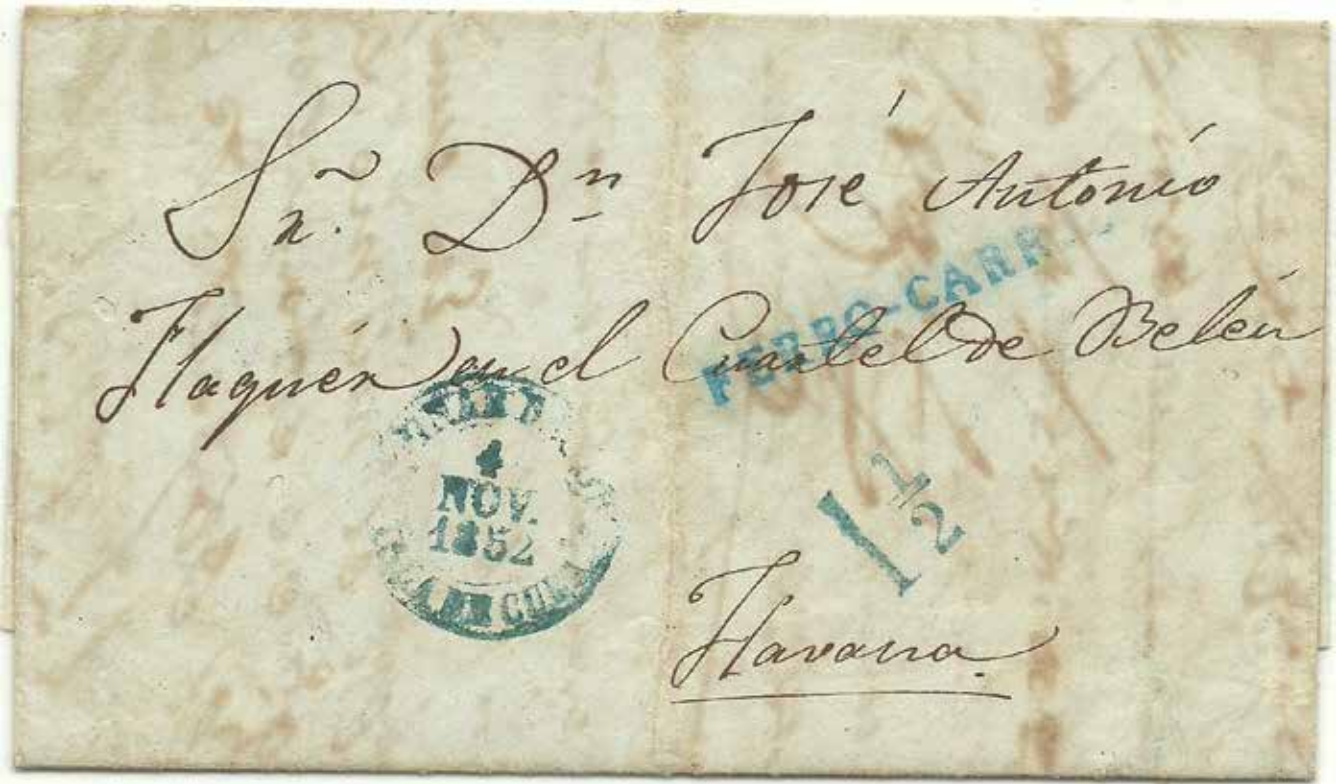 Sr. Dn José António
Flaquér en el Cuartel de Belén
FERRO-CARR
4
NOV.
1852
ISLA DE CUBA
1 1/2
Havana.